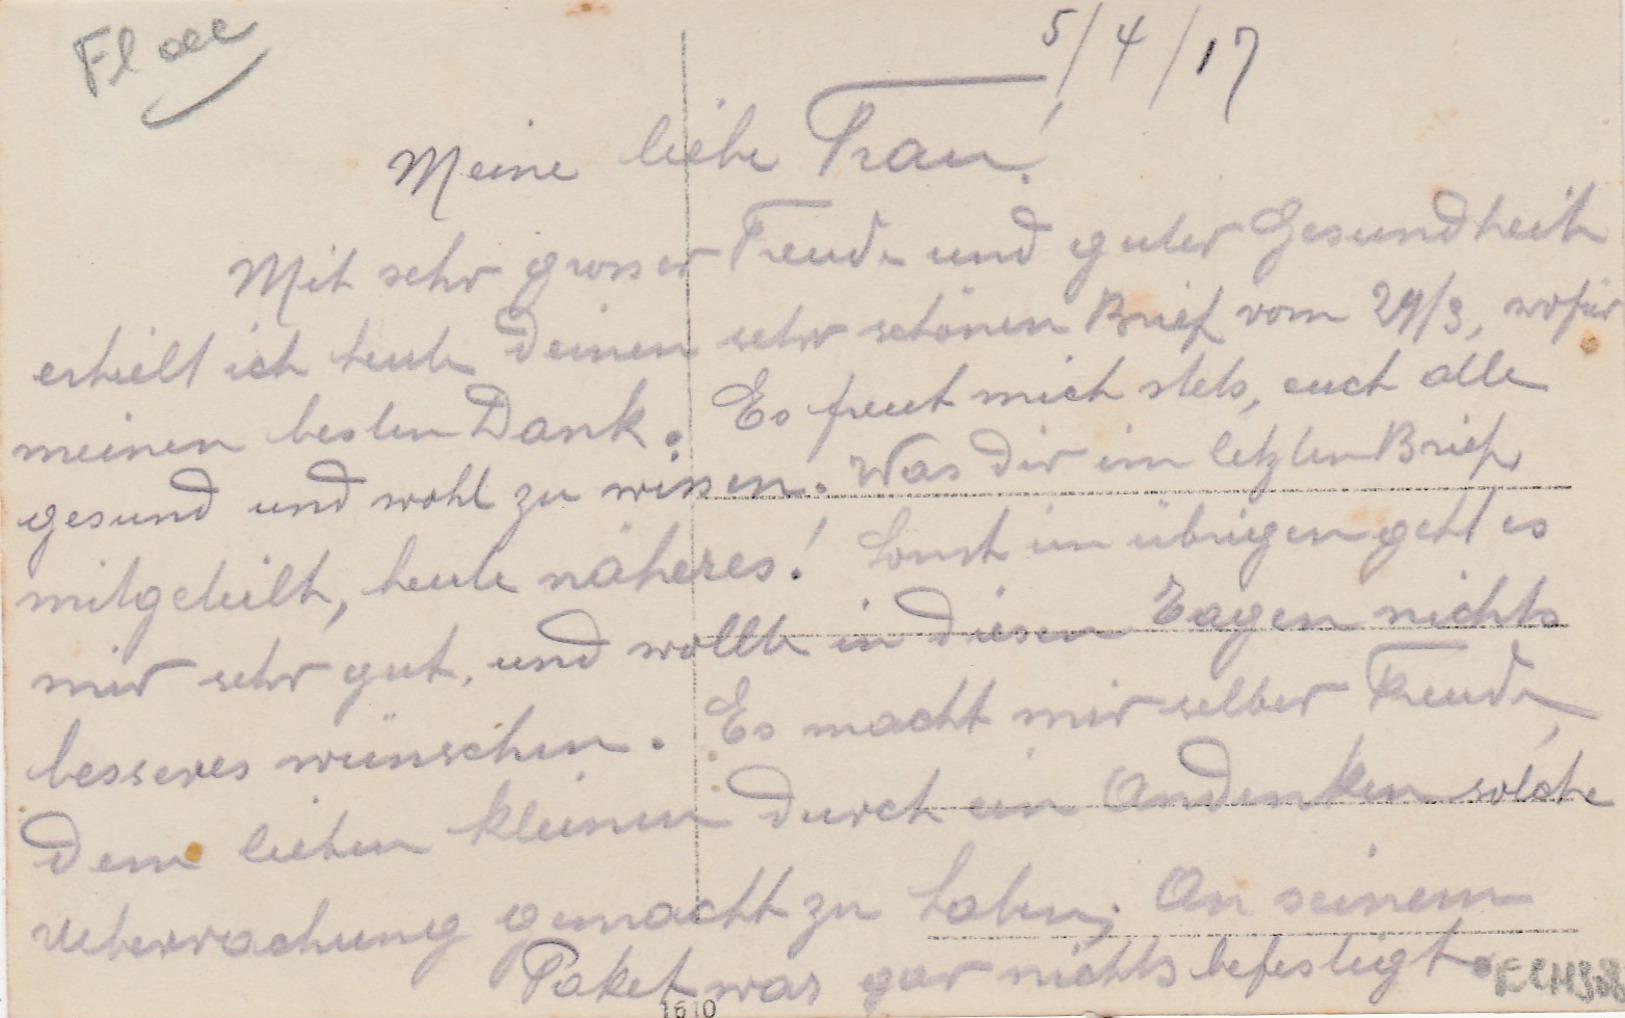 5/4/17
Meine liebe Frau!
Mit sehr grosser Freude und guter Gesundheit
erhielt ich heute Deinen sehr schönen Brief vom 29/3, wofür
meinen besten Dank. Es freut mich stets, euch alle
gesund und wohl zu wissen. Was dir im letzten Brief
mitgeteilt, heute näheres! Sonst im übrigen geht es
mir sehr gut, und wollte in diesen Tagen nichts
besseres wünschen. Es macht mir selber Freude,
dem lieben kleinen durch ein Andenken solche
Ueberrachung gemacht zu haben; An seinem
Paket war gar nichts befestigt.
1610